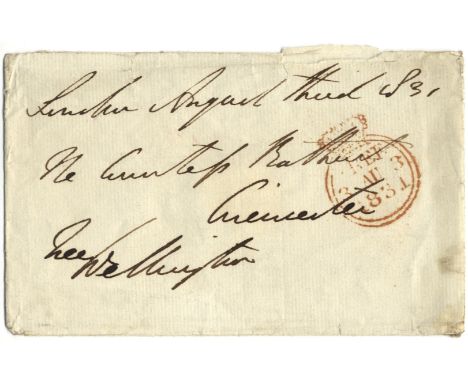 London August third 1831
The Countess Bathurst
FREE
3 AU 3
1831
Cirencester
Free
Wellington